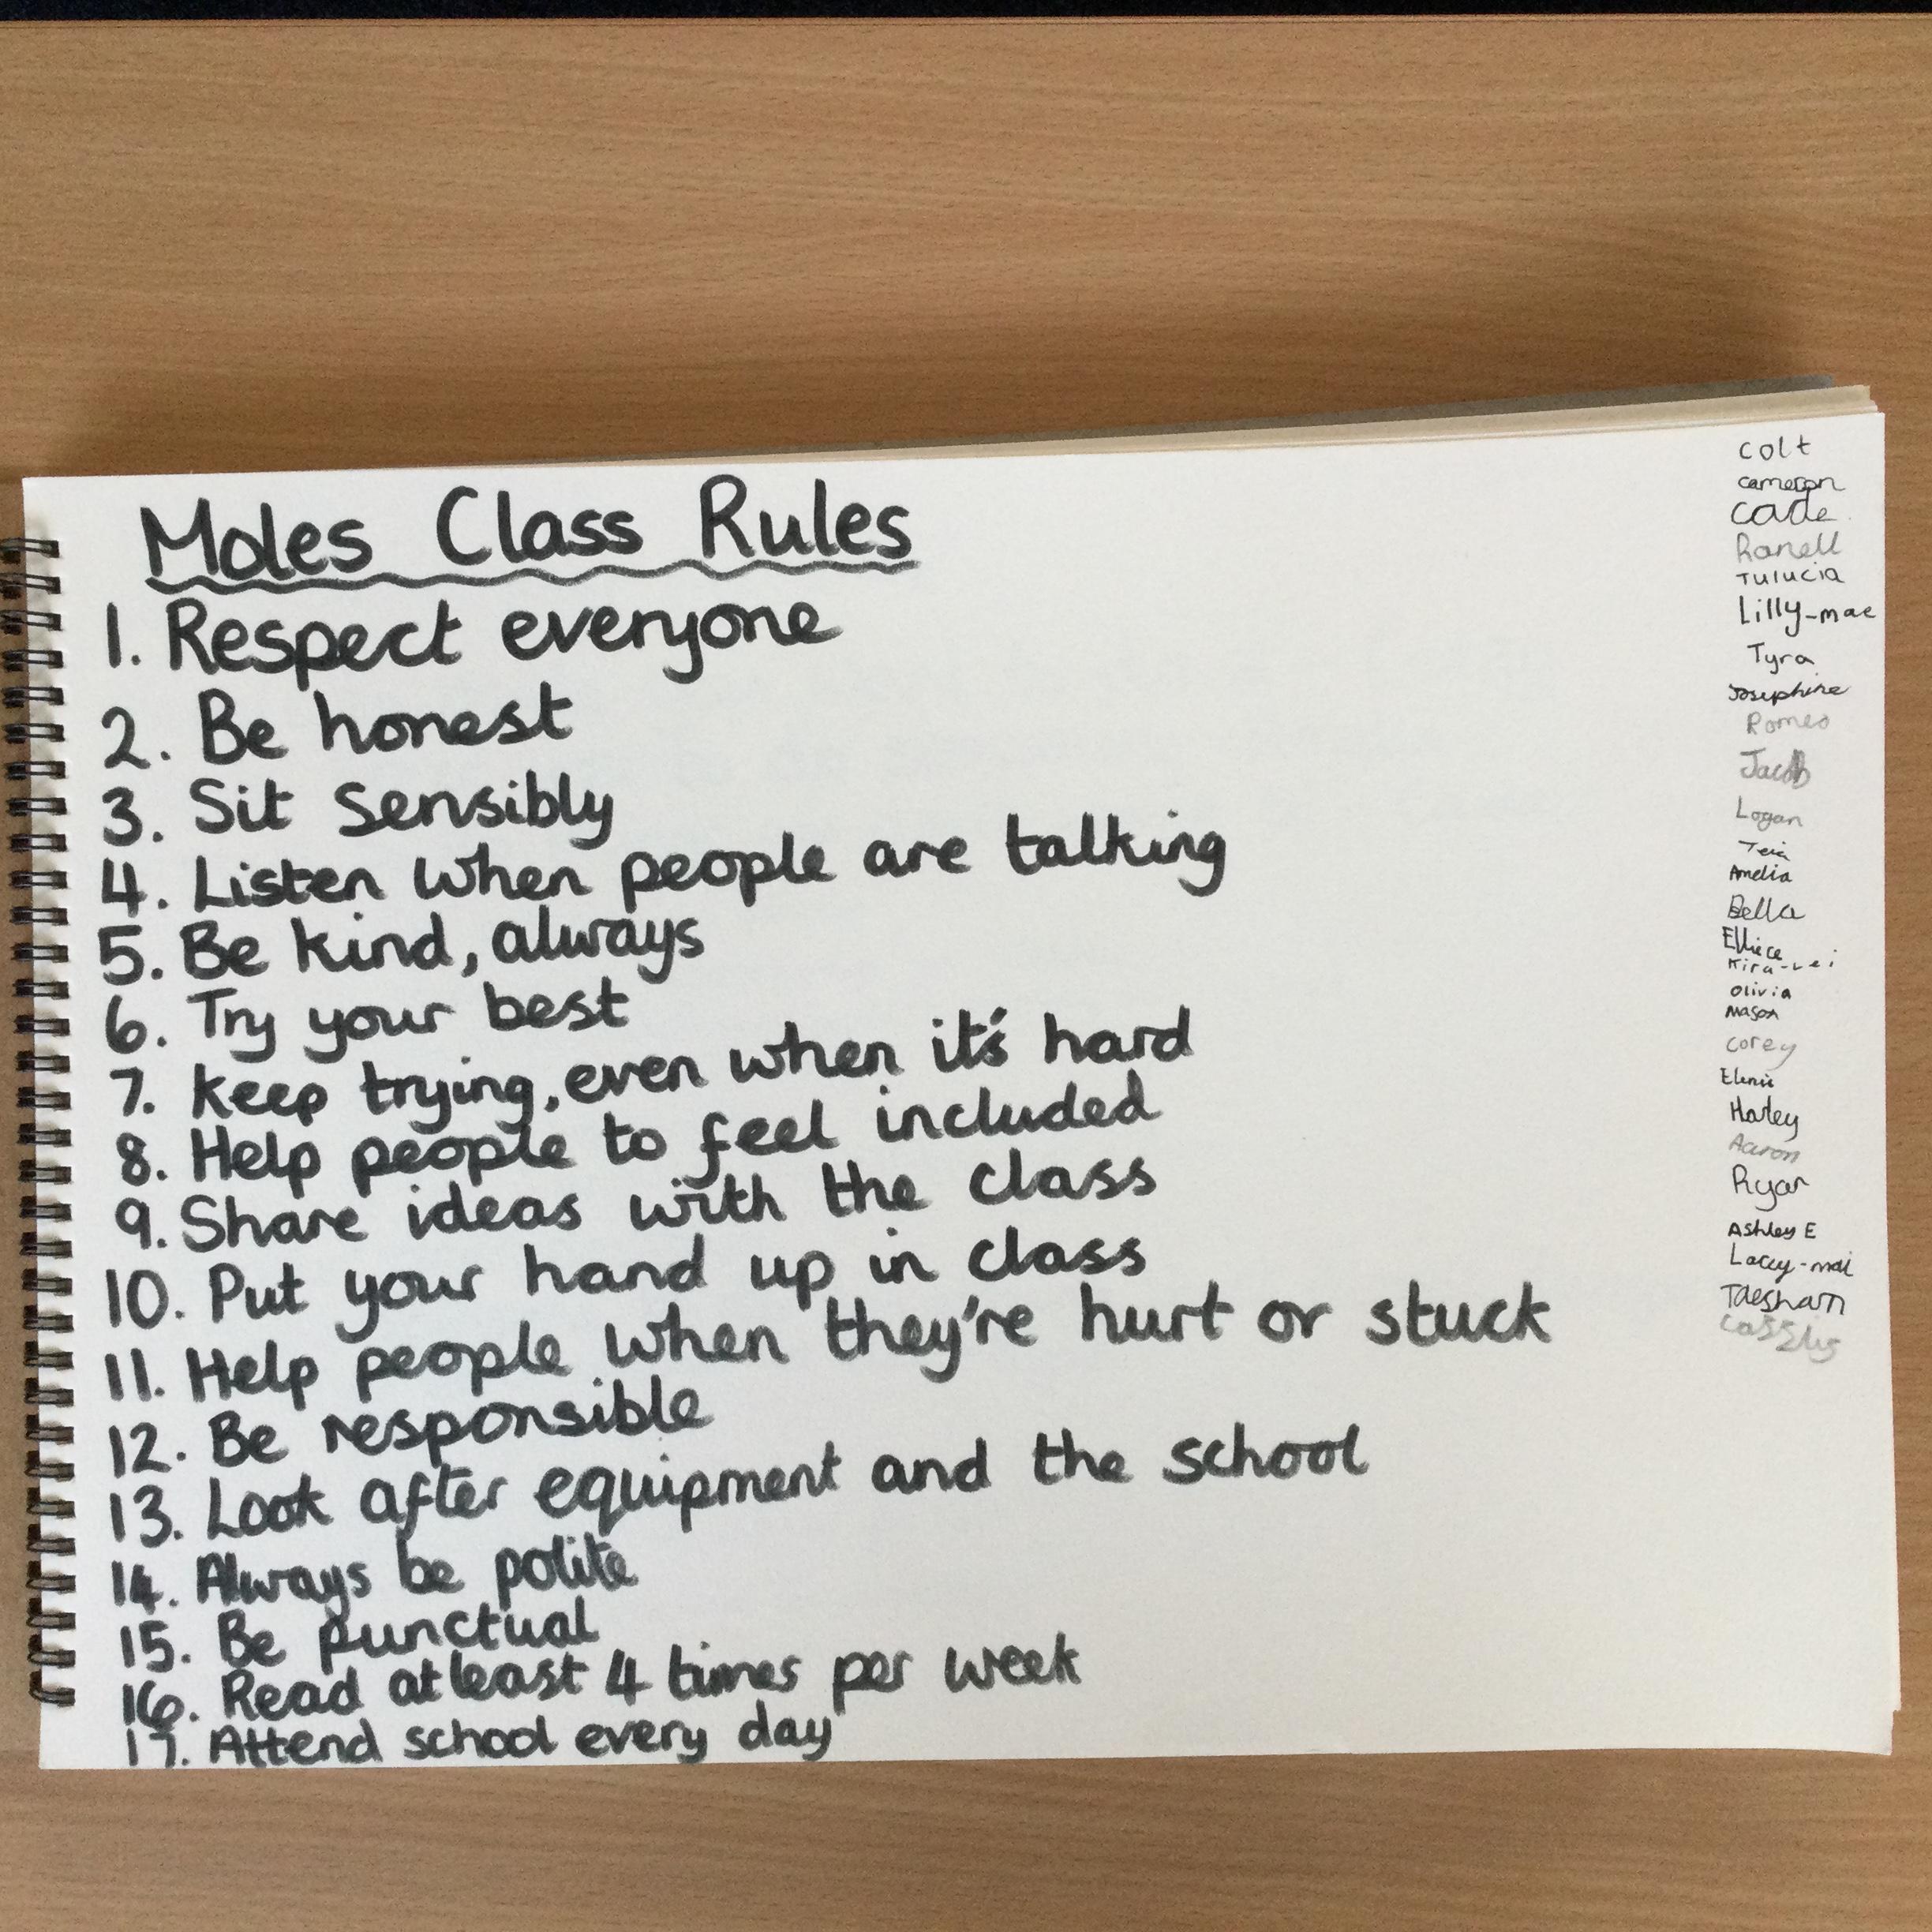 Moles Class Rules
1. Respect everyone
2. Be honest
3. Sit sensibly
4. Listen when people are talking
5. Be kind, always
6. Try your best
7. Keep trying, even when it's hard
8. Help people to feel included
9. Share ideas with the class
10. Put your hand up in class
11. Help people when they're hurt or stuck
12. Be responsible
13. Look after equipment and the school
14. Always be polite
15. Be punctual
16. Read at least 4 times per week
17. Attend school every day
colt
cameron
cade
Ranell
Tulucia
Lilly-mae
Tyra
Josephine
Romeo
Jacob
Logan
Teia
Amelia
Bella
Elliece
Kira-Lei
Olivia
Mason
corey
Harley
Aaron
Ryan
Ashley E
Lacey-mai
Taeshan